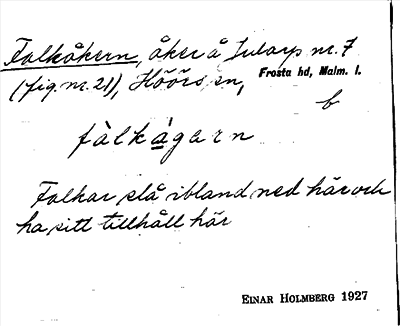 Falkåkern, åker å Jularp nr. 7
(fig. nr. 21), Höörs sn, Frosta hd, Malm. l.
b
fàlkágarn
Falkar slå ibland ned här och
ha sitt tillhåll här
EINAR HOLMBERG 1927